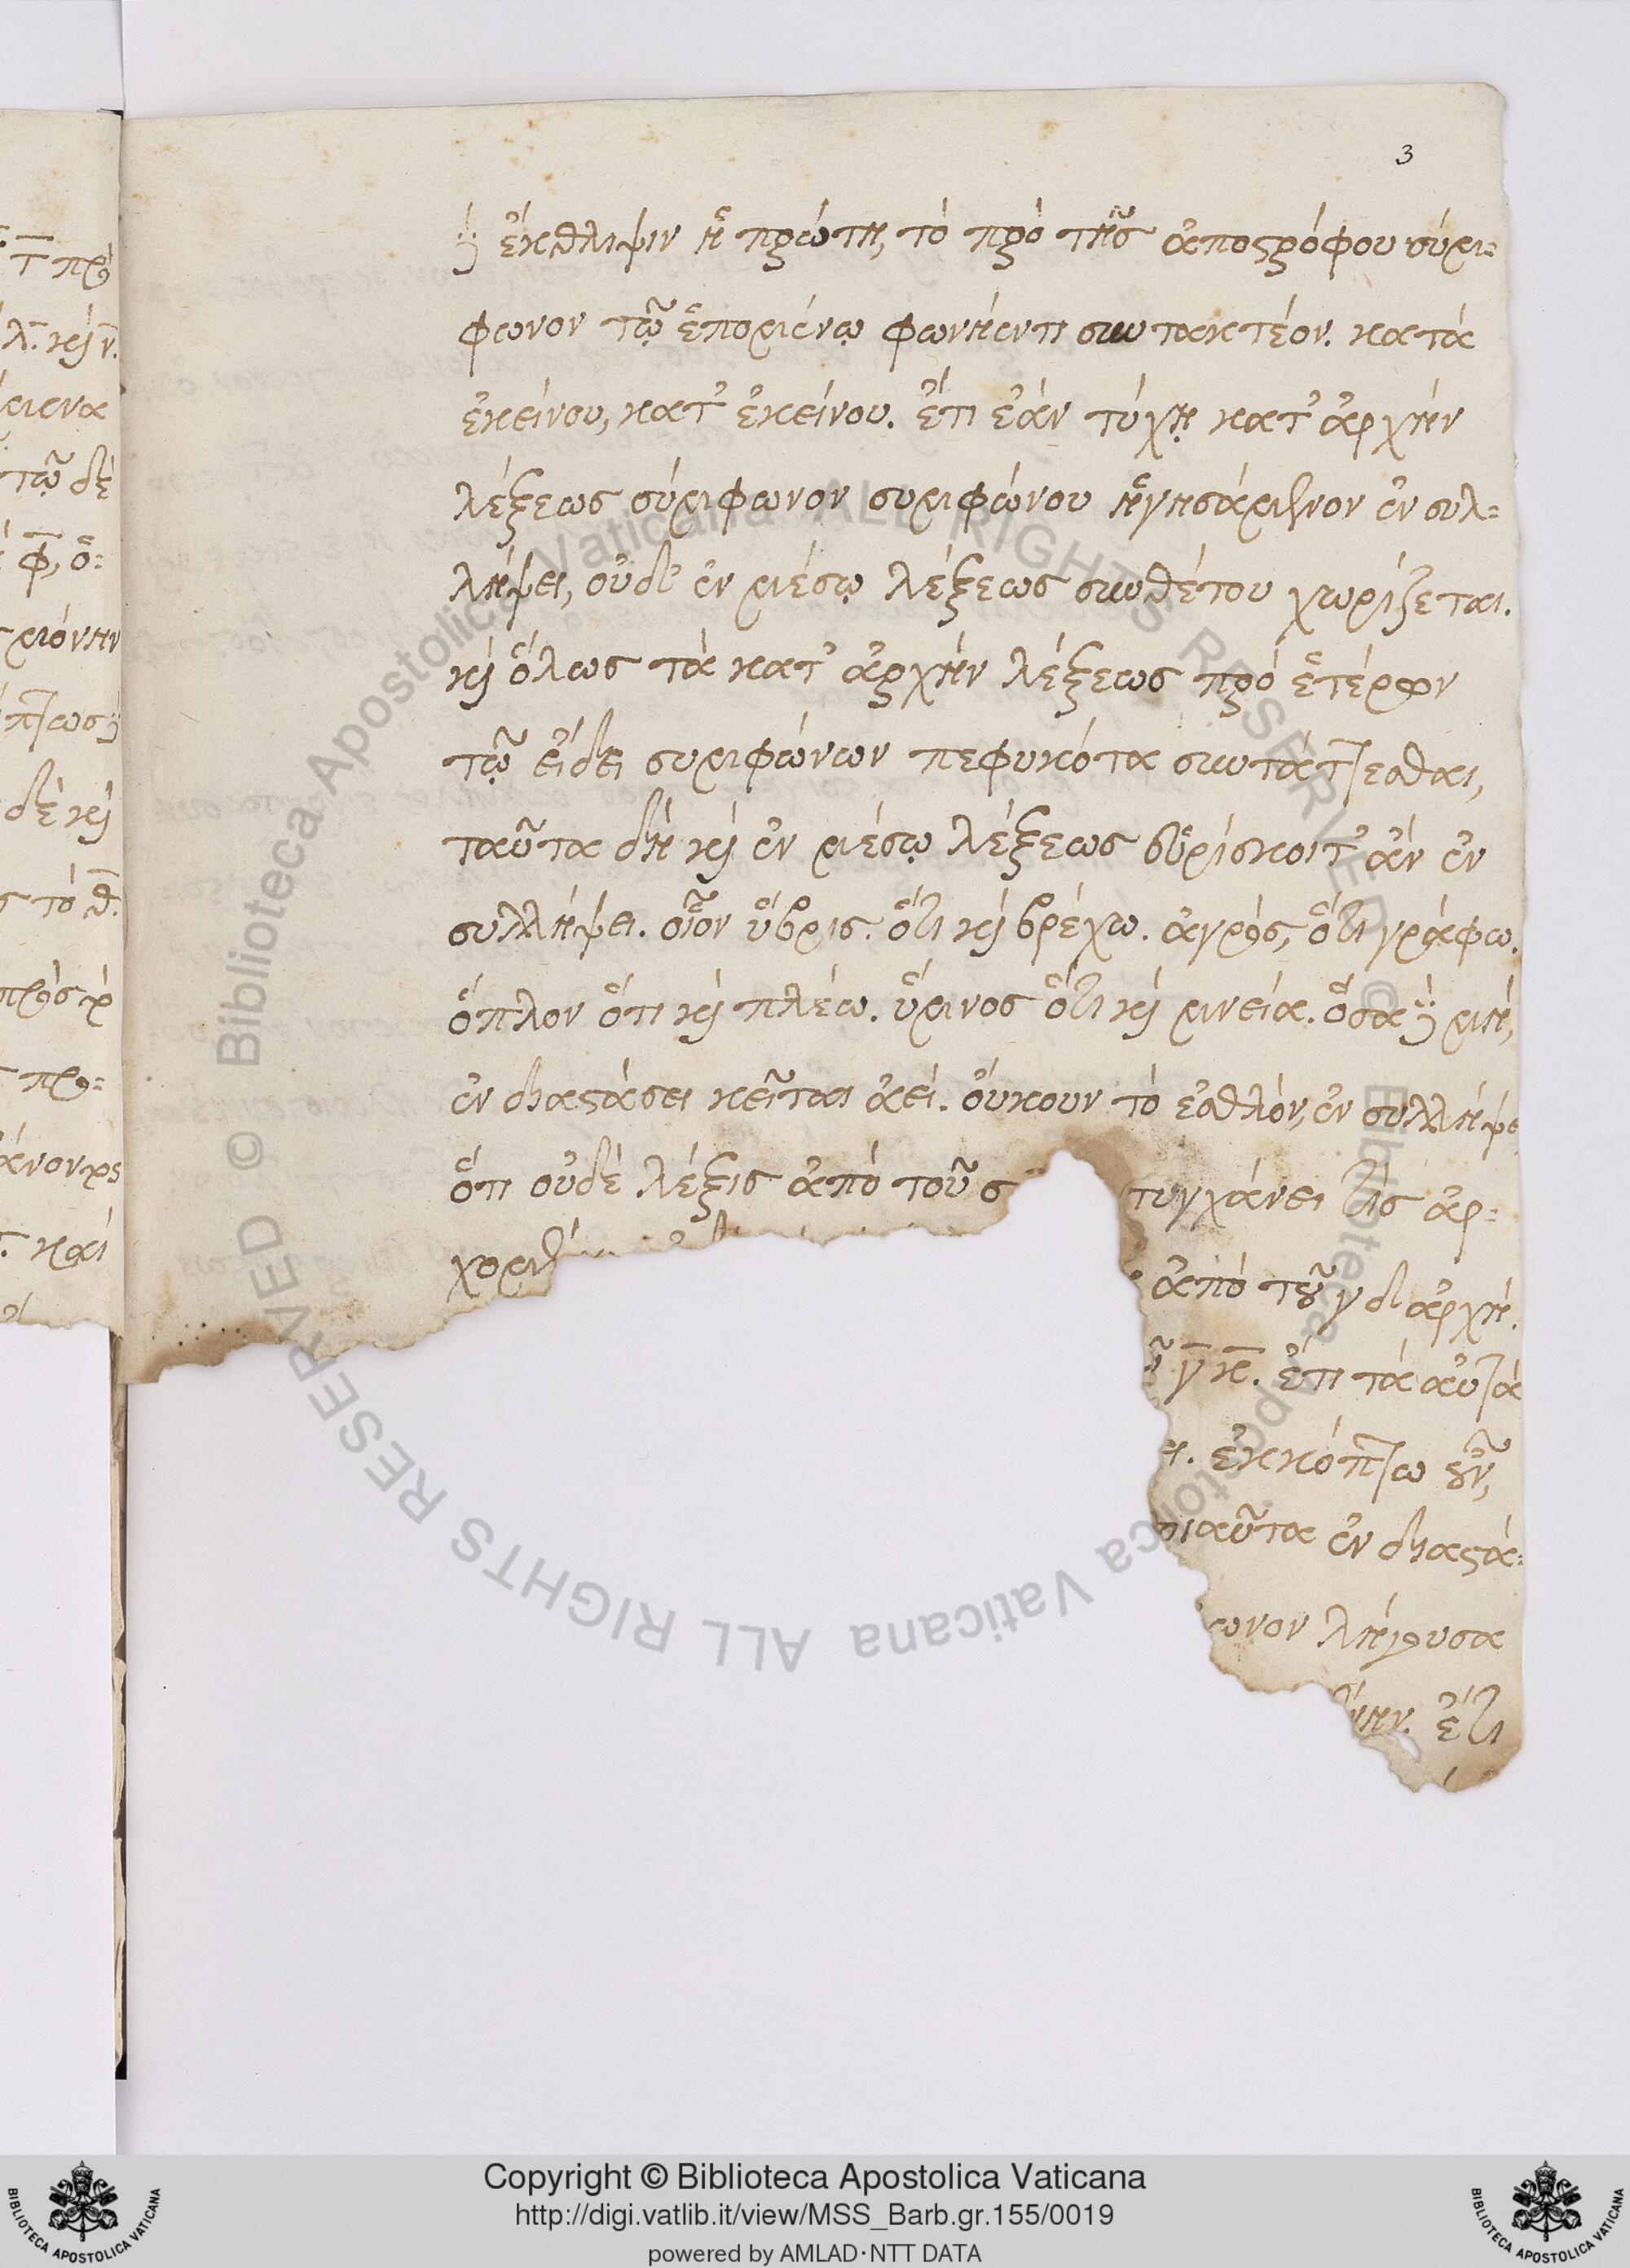 3
δὲ ἔκθλιψιν ἡ πρώτη, τὸ πρὸ τῆς ἀποστρόφου σύμ-
φωνον τῷ ἑπομένῳ φωνήεντι συντακτέον. κατὰ
ἐκείνου, κατ' ἐκείνου. ἔτι ἐὰν τύχῃ κατ' ἀρχὴν
λέξεως σύμφωνον συμφώνου ἡγησάμενον ἐν συλ-
λήψει, οὐδ' ἐν μέσῳ λέξεως συνθέτου χωρίζεται.
καὶ ὅλως τὰ κατ' ἀρχὴν λέξεως πρὸ ἑτέρων
τῷ εἴδει συμφώνων πεφυκότα συντάττεσθαι,
ταῦτα δὴ καὶ ἐν μέσῳ λέξεως εὑρίσκοιτ' ἂν ἐν
συλλήψει. οἷον ὕβρις. ὅτι καὶ βρέχω. ἀγρός, ὅτι γράφω.
ὅπλον ὅτι καὶ πλέω. ὕμνος ὅτι καὶ μνεία. ὅσα δὲ μὴ,
ἐν διαστάσει κεῖται ἀεί. οὔκουν τὸ ἐσθλὸν, ἐν συλλήψε
ὅτι οὐδὲ λέξις ἀπὸ τοῦ σ τυγχάνει τις ἀρ-
χομ
ἀπὸ τοῦ γδ ἀρχή.
γκ. ἔτι τὰ αὐτὰ
ἐκκόπτω οὖν,
οιαῦτα ἐν διαστά-
ωνον λήγουσα
ην. ἔτι
Copyright © Biblioteca Apostolica Vaticana
http://digi.vatlib.it/view/MSS_Barb.gr.155/0019
powered by AMLAD·NTT DATA
BIBLIOTECA APOSTOLICA VATICANA
BIBLIOTECA APOSTOLICA VATICANA
Biblioteca Apostolica Vaticana ALL RIGHTS RESERVED ©
Biblioteca Apostolica Vaticana ALL RIGHTS RESERVED ©